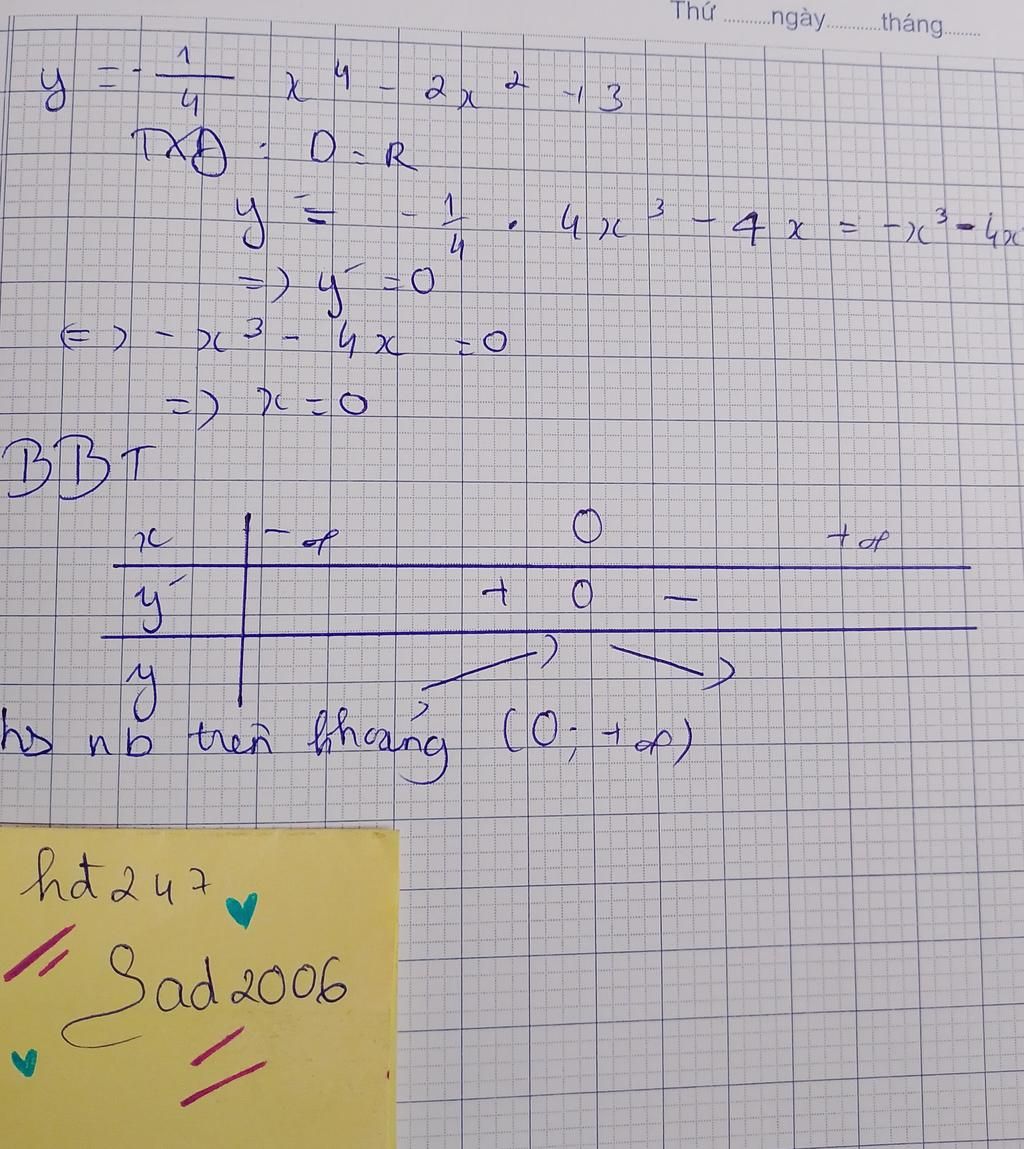 Thứ ..........ngày...........tháng.........
y = -1/4 x^4 - 2x^2 + 3
TXĐ : D = R
y' = -1/4 . 4x^3 - 4x = -x^3 - 4x
=> y' = 0
<=> -x^3 - 4x = 0
=> x = 0
BBT
x -∞ 0 +∞
y' + 0 -
y
hs nb trên khoảng (0; +∞)
hđ247
Sad2006